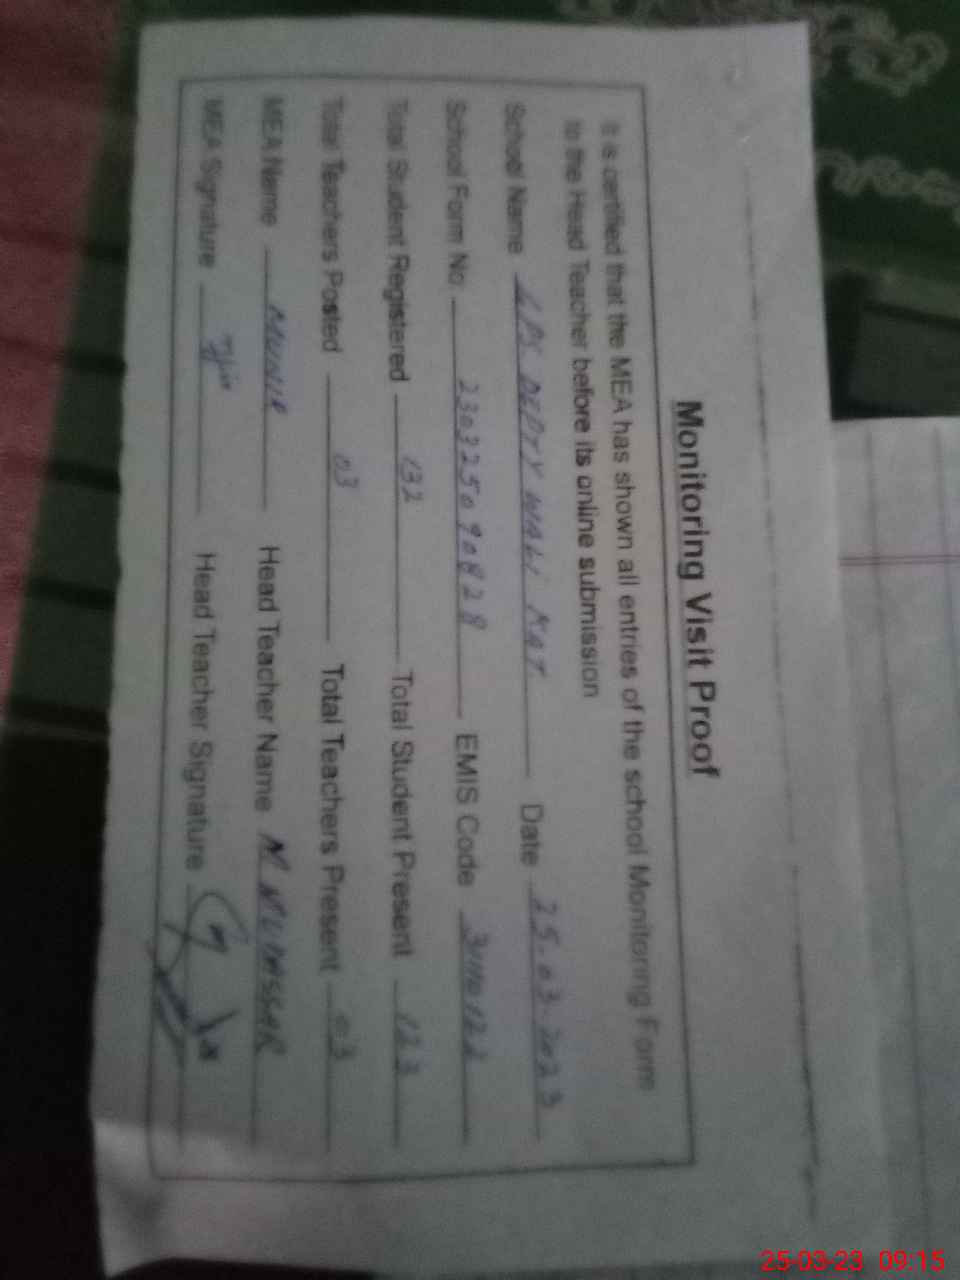 Monitoring Visit Proof
It is certified that the MEA has shown all entries of the school Monitoring Form
to the Head Teacher before its online submission
School Name GPS DEPTY WALI KOT Date 25.03.2023
School Form No 230325090828 EMIS Code
Total Student Registered 132 Total Student Present 123
Total Teachers Posted 03 Total Teachers Present 03
MEA Name MUNIR Head Teacher Name M MUDASSAR
MEA Signature Head Teacher Signature
25-03-23 09:15